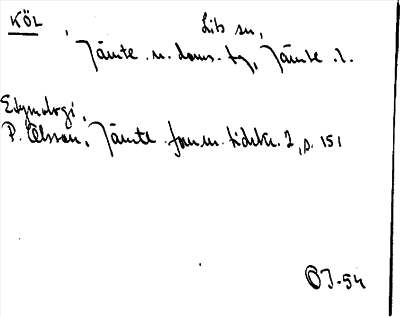 KÖL
Lits sn,
Jämte. n. doms. tg, Jämte. l.
Etymologi,
P. Olsson, Jämte. forn.m. tidskr. 2, s. 151
OJ-54